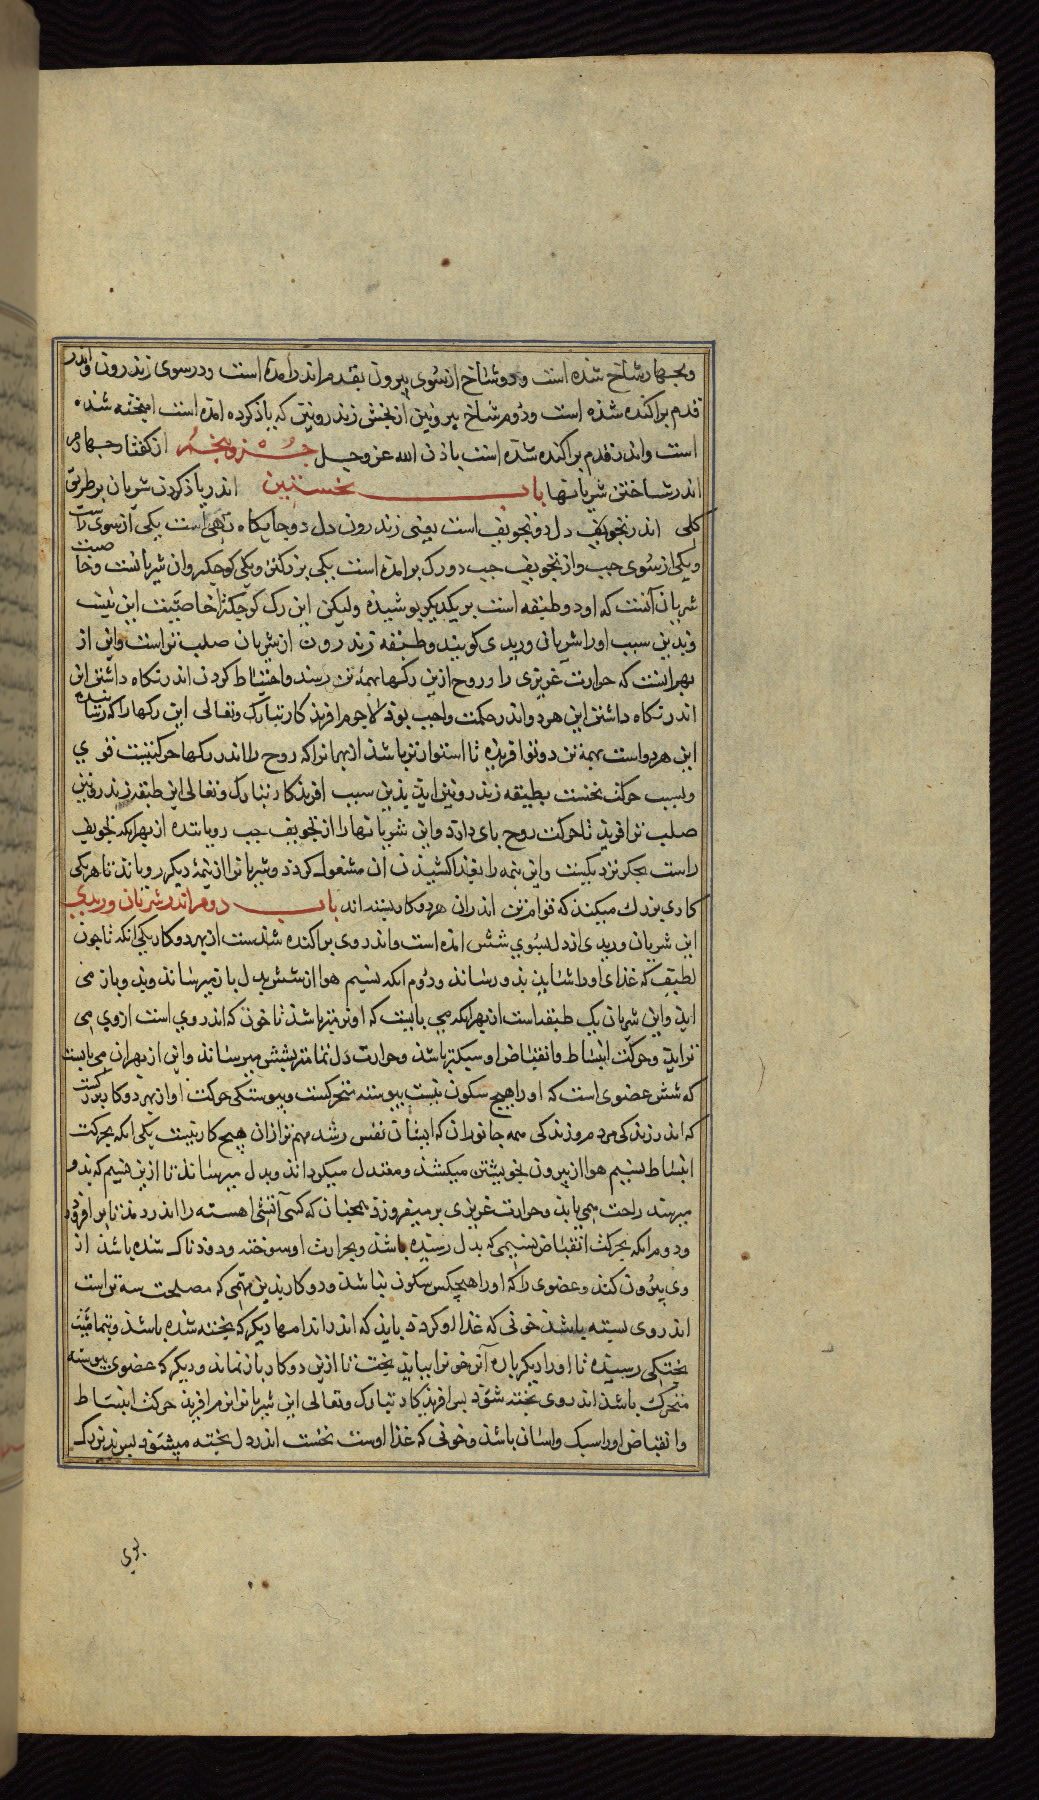 و بچهار شاخ شده است و دو شاخ از سوی بیرون بقدم اندر آمده است و در سوی زندرون و اندر
قدم پراکنده شده است و دوم شاخ بیرونین از بخش زندرونین که یاذ کرده امده است امیخته شده
است و اندر قدم پراکنده شده است باذن الله عز و جل جزو پنجم از کفتار چهارم
اندر شناختن شریانها باب نخستین اندر یاذ کردن شریان بر طریق
کلی اندر تجویف دل دو تجویف است یعنی زندرون دل دو جایکاه تهی است یکی از سوی راست
و یکی از سوی چپ و از تجویف چپ دو رک برامده است یکی بزرکتر و یکی کوچکتر و ان شریانست و خاصیت
شریان آنست که او دو طبقه است بر یکدیکر پوشیده و لیکن این رک کوچکتر را خاصیت این نیست
و بدین سبب او را شریان وریدی کویند و طبقه زندرون از شریان صلب تر است و این از
بهر انست که حرارت غریزی را و روح از این رکها بهمه تن رسد و احتیاط کردن اندر نکاه داشتن این
اندر نکاه داشتن این هر دو اندر حکمت واجب بوذ لاجرم افریذکار تبارک و تعالی این رکها را که رساننده
این هر دو است بهمه تن دو تو افریذه تا استوارتر باشذ از بهر انرا که روح را اندر رکها حرکتیست قوی
و لسبب حرکت نخست بطبقه زندرونین اید بذین سبب افریذکار تبارک و تعالی این طبقه زندرونین
صلب تر افریذ تا حرکت روح پای دارد و این شریانها را از تجویف چپ رویانیده از بهر انکه تجویف
راست بجکر نزدیکست و این نیمه را بغذا کشیذن ان مشغول کردد و شریانرا از نیمه دیکر رویانذ تا هر یکی
کاری بزرک میکنند که قوام تن اندران هر دو کار بسته اند باب دوم اندر شریان وریدی
این شریان وریدی از دل بسوی شش امده است و اندر وی پراکنده شدست از بهر دو کار یکی انکه تا خون
لطیف که غذای او را شاید بذو رساند و دوم انکه نسیم هوا از شش بدل باز میرساند و بذو باز می
اید و این شریان یک طبقه است از بهر انکه می بایست که او نرمتر باشذ تا خون که اندر وی است از وی می
ترابد و حرکت انبساط و انقباض او سبکتر باشذ و حرارت دل تمامتر بشش میرساند و این از بهر ان می بایست
که شش عضوی است که او را هیچ سکون نیست پیوسته متحرکست و پیوستکی حرکت او از بهر دو کار بزرکست
که اندر زندکی مردم و زندکی همه جانوران که ایشان نفس رشد مهم تر از ان هیچ کار نیست یکی انکه بحرکت
انبساط نسیم هوا از بیرون بخویشتن میکشذ و معتدل میکرداند و بدل میرساند تا از ین نسیم که بذو
میرسد راحت می یابد و حرارت غریزی بر میفروزد همچنان که کسی آتشی اهسته را اندر دمد تا بر افروزد
و دوم انکه بحرکت انقباض نسیمی که بدل رسیده باشذ و بحرارت او سوخته و دودناک شده باشذ از
وی بیرون کند و عضوی را که او را هیچکس سکون نباشذ و دو کار بذین مهمی که مصلحت سه تر است
اندر وی بسته باشذ خونی که غذا او کردد باید که اندر اندامها دیکر که پخته شده باشذ و بتمامیت
پختکی رسیده تا او را دیکر باره آن خونرا بباید پخت تا از این دو کار باز نماند و دیکر که عضوی پیوسته
متحرک باشذ اندر وی پخته شود پس افریذکار تبارک و تعالی این شریانرا نرم افریذ حرکت انبساط
و انقباض او را سبک و اسان باشذ و خونی که غذا اوست نخست اندر دل پخته میشود پس نزدیک
بوی